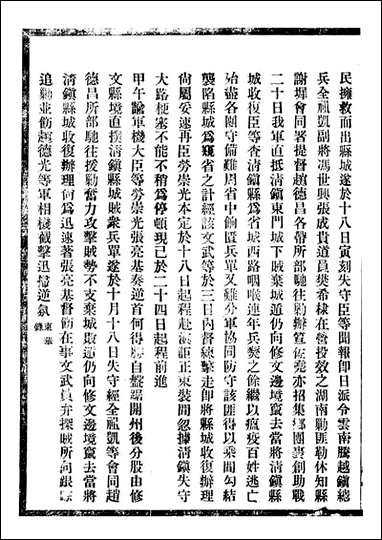 民擁救而出縣城遂於十八日寅刻失守臣等聞報即日派令雲南騰越鎮總
兵全祖凱副將馮世興張成貴道員樊希棣在營投效之湖南勦匪勒休知縣
謝墀會同署提督趙德昌各帶所部馳往勦辦笪侯堯亦招集鄉團專創助戰
二十日我軍直抵清鎮東門城下賊棄城敗遁仍向修文邊境竄去當將清鎮
城收復臣等查清鎮縣為省城西路咽喉連年兵燹之餘繼以瘟疫百姓逃亡
殆盡各團守備難周省中餉匱兵單又難分軍協同防守該匪得以乘間勾結
襲陷縣城為窺省之計經該文武等於三日內督練擊走即將縣城收復辦理
尚屬妥速再臣勞崇光本定於十八日起程赴滇詎正束裝間忽據清鎮失守
大路梗塞不能不稍為停頓現已於二十四日起程前進
甲午諭軍機大臣等勞崇光張亮基奏逆首何得勝自盤踞開州後分股由修
文縣境直撲清鎮縣城賊眾兵單遂於十月十八日失守經全祖凱等會同趙
德昌所部馳往援勦奮力攻擊賊勢不支棄城敗遁仍向修文邊境竄去當將
清鎮縣城收復辦理何為迅速著張亮基督飭在事文武員弁探賊所向跟蹤
追勦並飭趙德光等軍相機截擊迅掃逆氛東華錄